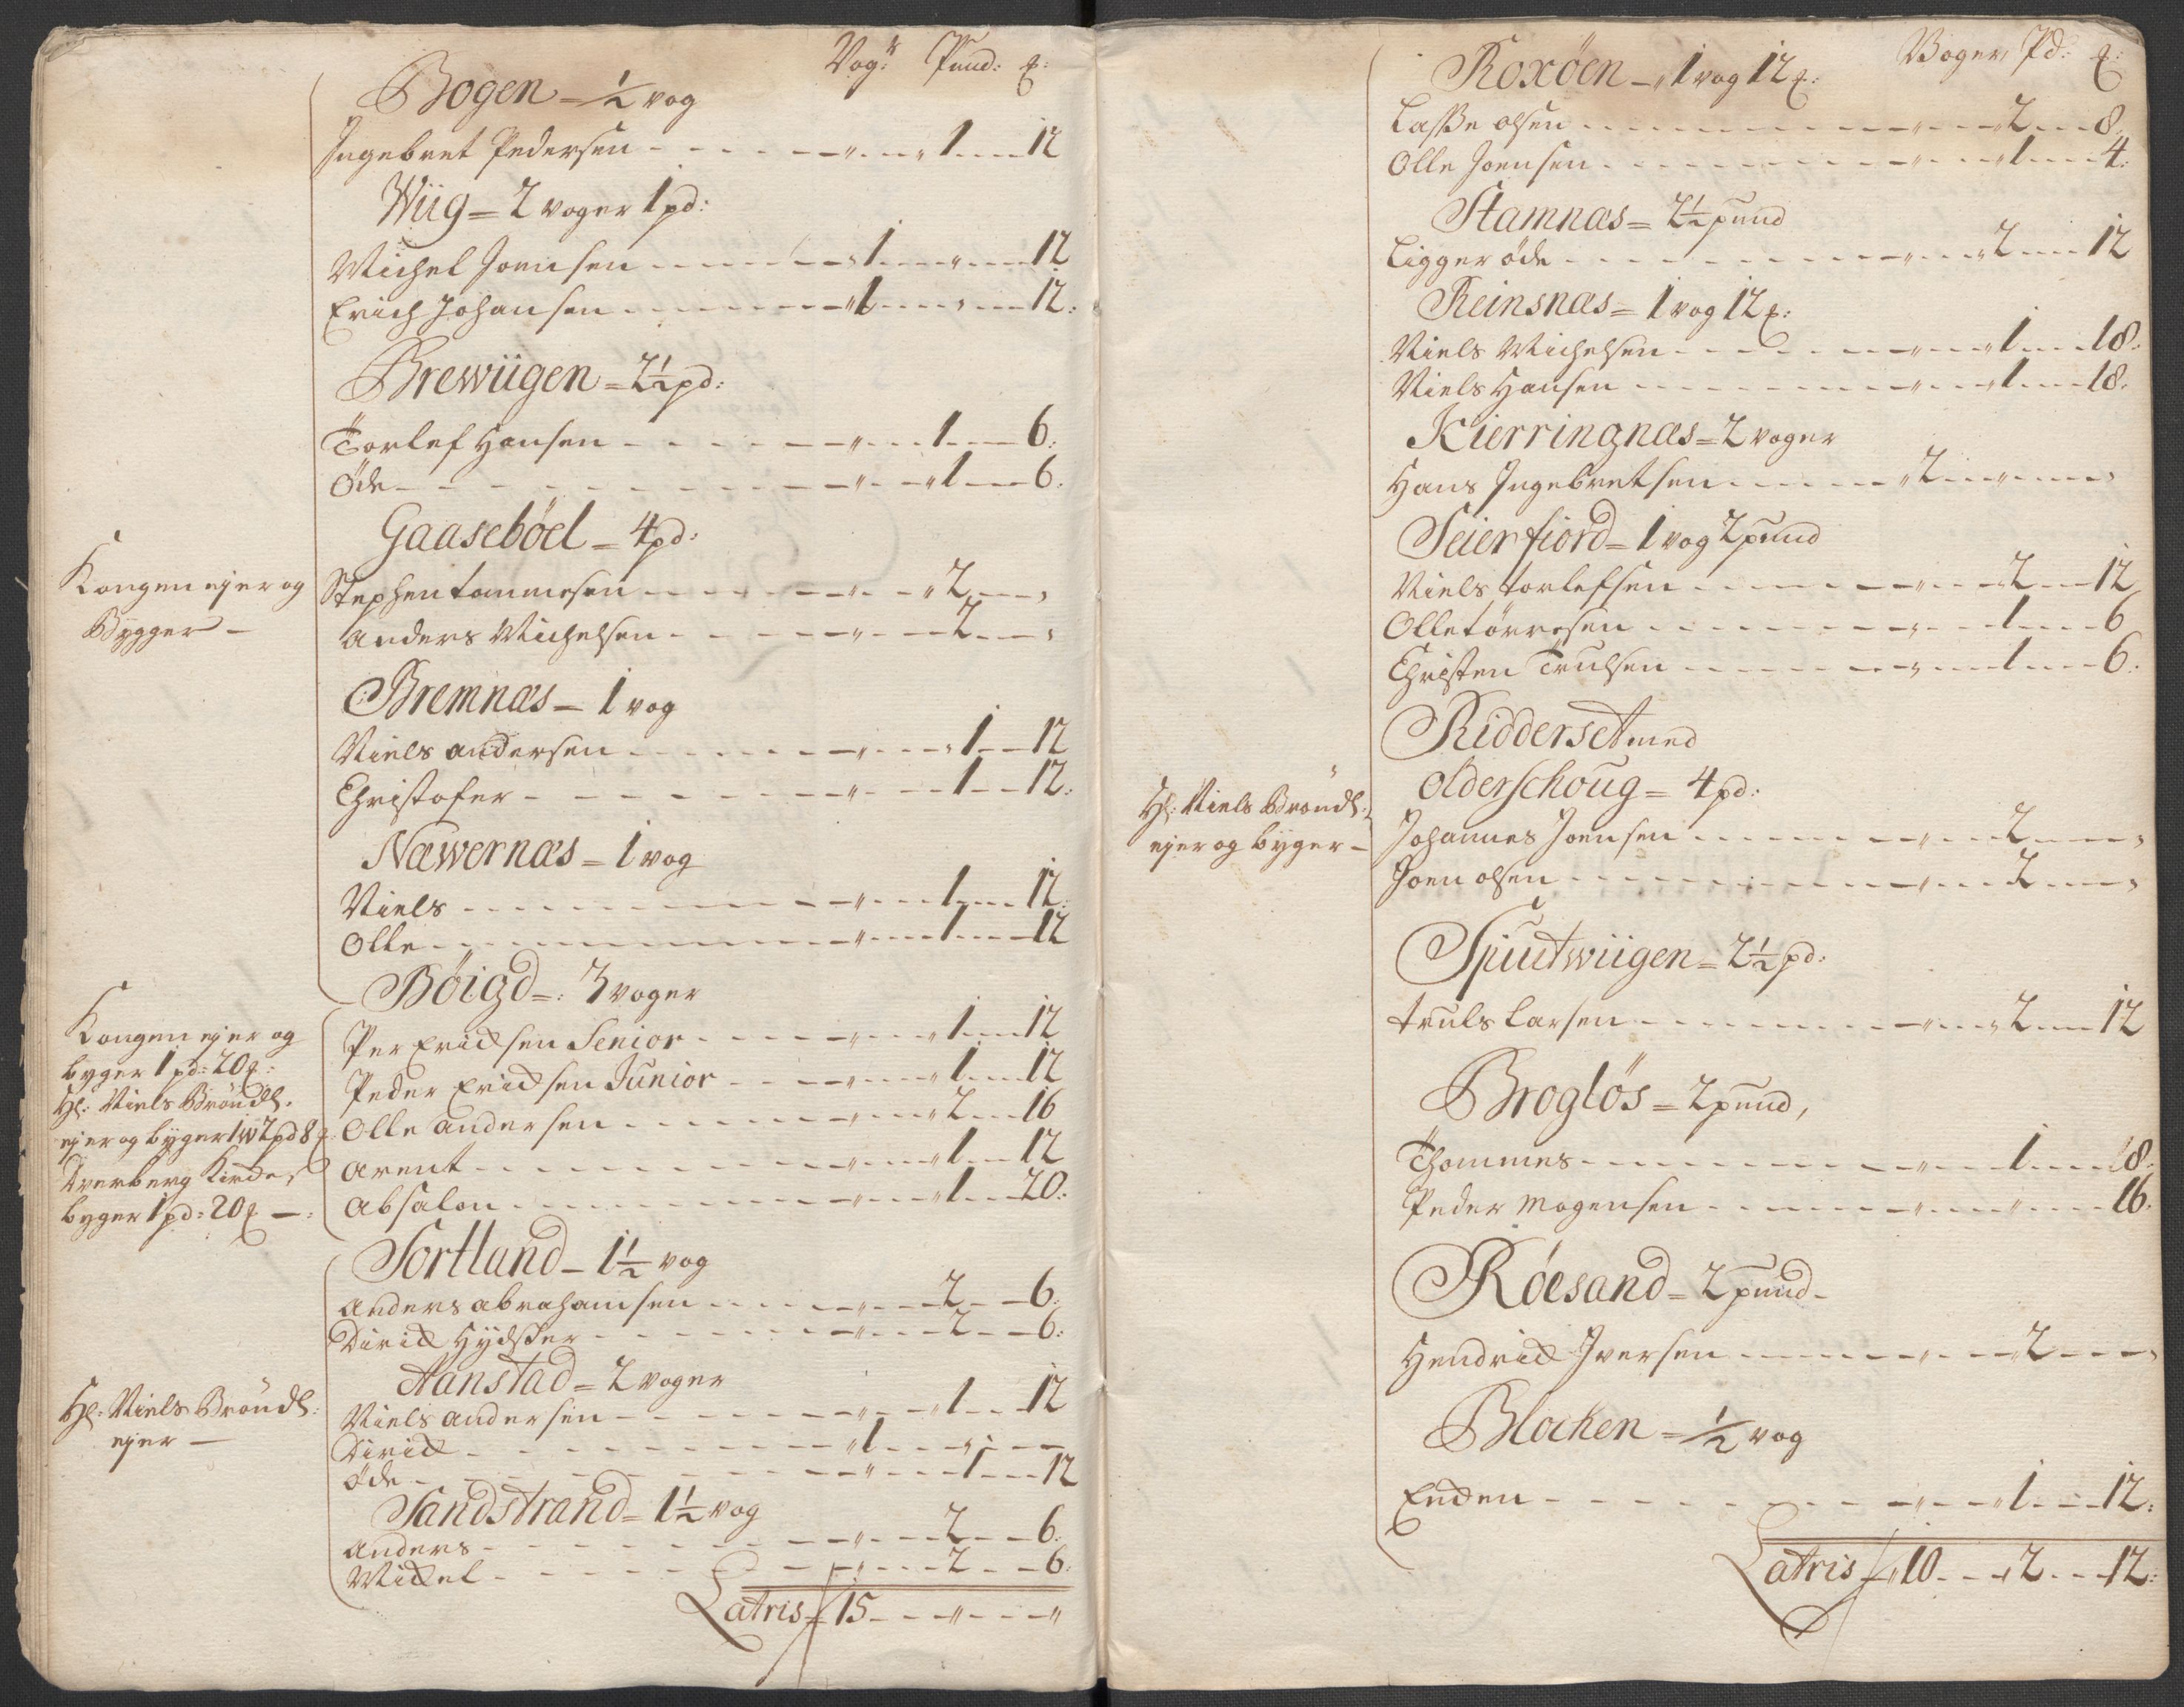 Vog: Pund: ℔:
Bogen = ½ vog
Ingebret Pedersen - - - „ - - „ 1 - - 12
Wiig = 2 voger 1 pd:
Michel Joensen - - - 1 - - „ - - 12
Erich Johansen - - - „ 1 - - „ - - 12:
Brewiigen = 2½ pd:
Torlef Hansen - - - „ - - 1 - - 6:
Øde - - - „ - - „ 1 - - 6:
Gaasebøel = 4 pd:
Kongen ejer og
Bygger -
Stephen tommesen - - - „ - - „ 2 - - „
Anders Michelsen - - - „ - - 2 - - „
Bremnæs = 1 vog
Niels andersen - - - „ - - „ 1 - - 12
Christofer - - - „ - - 1 - - 12:
Næwernæs = 1 vog
Niels - - - „ - - 1 - - 12:
Olle - - - „ - - 1 - - 12
Bøigd =: 3 voger
Kongen ejer og
byger 1 pd: 20 ℔:
Hr: Niels Brøndl:
ejer og byger 1 w 2 pd 8 ℔
Dverberg Kircke,
byger 1 pd: 20 ℔ -:
Per Ericksen Senior - - - „ - - „ 1 - - 12
Peder Ericksen Junior - - - „ - - „ 1 - - 12
Olle andersen - - - „ - - „ 2 - - 16
Arent - - - „ - - „ 1 - - 12
Absalon - - - „ - - „ 1 - - 20:
Sortland - 1½ vog
Anders abrahamsen - - - „ - - 2 - - 6:
Dirick Hÿdsker - - - „ - - 2 - - 6:
Aanstad = 2 voger
Hr: Niels Brøndl:
ejer -
Niels andersen - - - „ - - „ 1 - - 12
Dirick - - - „ 1 - - „ - - „
Øde - - - „ - - 1 - - 12
Sandstrand = 1½ vog
Anders - - - „ - - 2 - - 6:
Mickel - - - „ - - 2 - - 6:
Latris 15 - - „ - - „
Voger Pd: ℔:
Roxøen - „ 1 vog 12 ℔:
Lasse olsen - - - „ - - „ 2 - - 8:
Olle Joensen - - - „ - - „ 1 - - 4:
Stamnæs = 2½ pund
Ligger øde - - - „ - - „ 2 - - 12
Reinsnæs = 1 vog 12 ℔:
Niels Michelsen - - - „ - - „ 1 - - 18:
Niels Hansen - - - „ - - „ 1 - - 18:
Kierringnæs = 2 voger
Hans Ingebretsen - - - „ 2 - - „ - - „
Seierfiord = 1 vog 2 pund
Niels torlefsen - - - „ - - 2 - - 12
Olle tørresen - - - „ - - 1 - - 6
Christen Trulsen - - - „ - - 1 - - 6:
Ridderset med
Olderschoug = 4 pd:
Hr: Niels Brøndl:
ejer og byger -
Johannes Joensen - - - „ - - 2 - - „
Joen olsen - - - „ - - 2 - - „
Spiutwiigen = 2½ pd:
truls Larsen - - - „ - - „ 2 - - 12
Brogløs = 2 pund,
Thommes - - - „ - - 1 - - 8:
Peder Mogensen - - - „ - - „ - - 16:
Røesand = 2 pund -
Hendrick Iversen - - - „ - - 2 - - „
Blocken = ½ vog
Encken - - - „ - - „ 1 - - 12:
Latris „ 10 - - 2 - - 12: